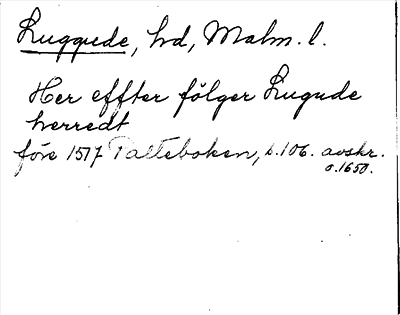 Luggude, hd, Malm. l.
Her effter följger Lugude
herredt
före 1517 Palteboken, s. 106. avskr.
o. 1650.